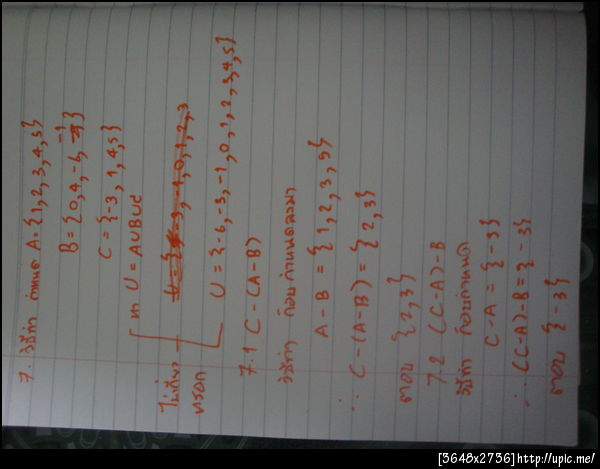 7. วิธีทำ กำหนด A = {1,2,3,4,5}
B = {0,4,-6,-1}
C = {-3,1,4,5}
หา U = AUBUC
ไม่เกี่ยว
หรอก
U = {-6,-3,-1,0,1,2,3
U = {-6,-3,-1,0,1,2,3,4,5}
7.1 C-(A-B)
วิธีทำ ก็อบกำหนดลงมา
A-B = {1,2,3,5}
∴ C-(A-B) = {2,3}
ตอบ {2,3}
7.2 (C-A)-B
วิธีทำ ก็อบกำหนด
C-A = {-3}
∴ (C-A)-B = {-3}
ตอบ {-3}
[3648x2736]http://upic.me/